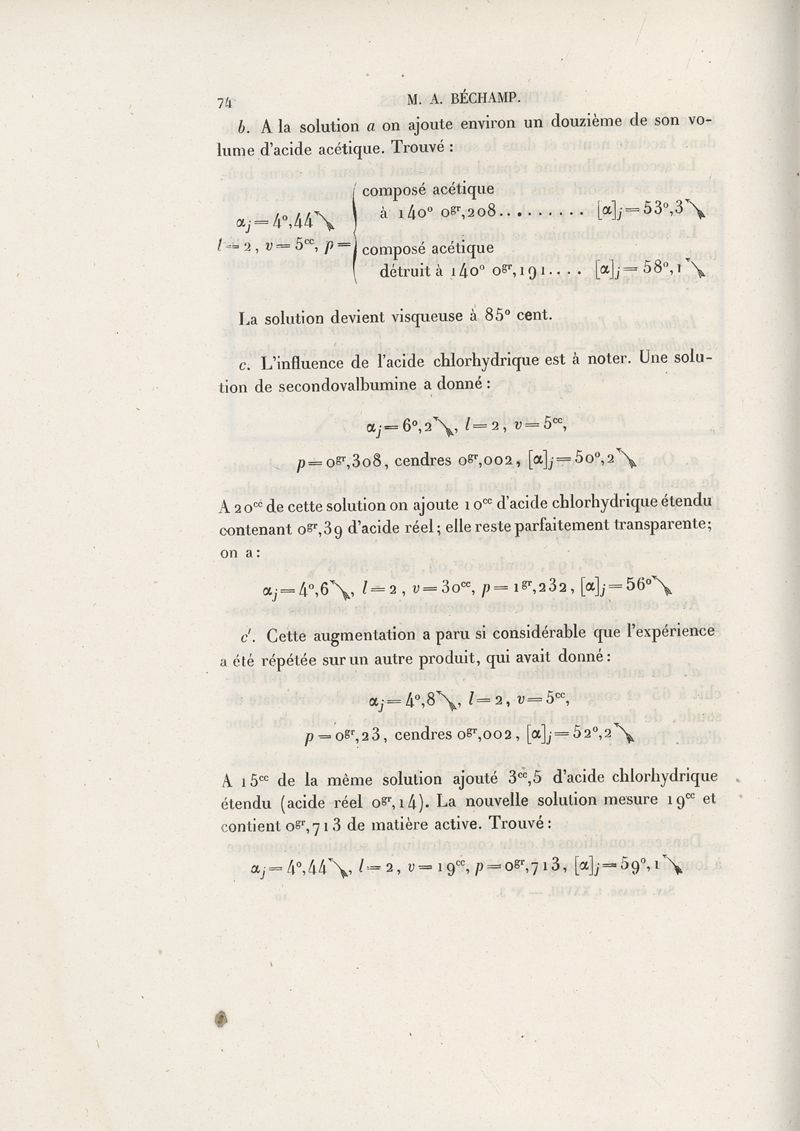 74 M. A. BÉCHAMP.
b. A la solution a on ajoute environ un douzième de son vo-
lume d'acide acétique. Trouvé :
composé acétique
αj = 4°,44 ↘ à 140° 0gr,208.......... [α]j = 53°,3 ↘
l = 2, v = 5cc, p = composé acétique
détruit à 140° 0gr,191.... [α]j = 58°,1 ↘
La solution devient visqueuse à 85° cent.
c. L'influence de l'acide chlorhydrique est à noter. Une solu-
tion de secondovalbumine a donné :
αj = 6°,2 ↘, l = 2, v = 5cc,
p = 0gr,308, cendres 0gr,002, [α]j = 50°,2 ↘
A 20cc de cette solution on ajoute 10cc d'acide chlorhydrique étendu
contenant 0gr,39 d'acide réel; elle reste parfaitement transparente;
on a :
αj = 4°,6 ↘, l = 2, v = 30cc, p = 1gr,232, [α]j = 56° ↘
c'. Cette augmentation a paru si considérable que l'expérience
a été répétée sur un autre produit, qui avait donné :
αj = 4°,8 ↘, l = 2, v = 5cc,
p = 0gr,23, cendres 0gr,002, [α]j = 52°,2 ↘
A 15cc de la même solution ajouté 3cc,5 d'acide chlorhydrique
étendu (acide réel 0gr,14). La nouvelle solution mesure 19cc et
contient 0gr,713 de matière active. Trouvé :
αj = 4°,44 ↘, l = 2, v = 19cc, p = 0gr,713, [α]j = 59°,1 ↘